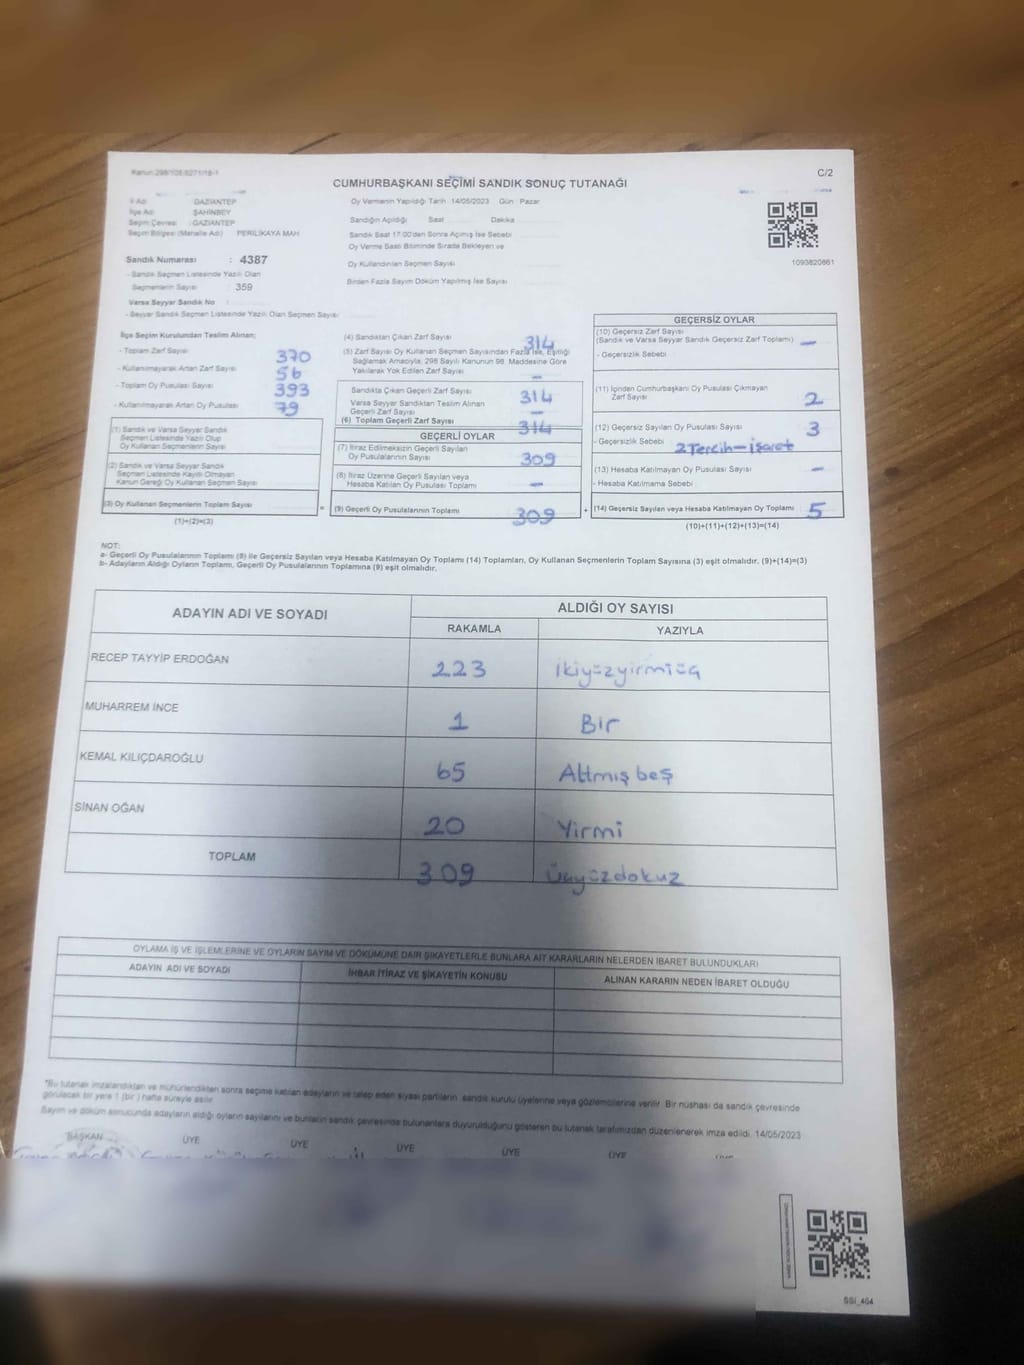 Kanun:298/105,6271/18-1
C/2
CUMHURBAŞKANI SEÇİMİ SANDIK SONUÇ TUTANAĞI
İl Adı : GAZİANTEP
İlçe Adı : ŞAHİNBEY
Seçim Çevresi : GAZİANTEP
Seçim Bölgesi (Mahalle Adı) PERİLİKAYA MAH
Sandık Numarası : 4387
- Sandık Seçmen Listesinde Yazılı Olan
Seçmenlerin Sayısı : 359
Varsa Seyyar Sandık No :
- Seyyar Sandık Seçmen Listesinde Yazılı Olan Seçmen Sayısı
Oy Vermenin Yapıldığı Tarih 14/05/2023 Gün : Pazar
Sandığın Açıldığı Saat Dakika
Sandık Saat 17:00'den Sonra Açılmış İse Sebebi
Oy Verme Saati Bitiminde Sırada Bekleyen ve
Oy Kullandırılan Seçmen Sayısı
Birden Fazla Sayım Döküm Yapılmış İse Sayısı
1093820861
İlçe Seçim Kurulundan Teslim Alınan;
- Toplam Zarf Sayısı 370
- Kullanılmayarak Artan Zarf Sayısı 56
- Toplam Oy Pusulası Sayısı 393
- Kullanılmayarak Artan Oy Pusulası 79
(1) Sandık ve Varsa Seyyar Sandık
Seçmen Listesinde Yazılı Olup
Oy Kullanan Seçmenlerin Sayısı
(2) Sandık ve Varsa Seyyar Sandık
Seçmen Listesinde Kayıtlı Olmayan
Kanun Gereği Oy Kullanan Seçmen Sayısı
(3) Oy Kullanan Seçmenlerin Toplam Sayısı
(1)+(2)=(3)
(4) Sandıktan Çıkan Zarf Sayısı 314
(5) Zarf Sayısı Oy Kullanan Seçmen Sayısından Fazla İse, Eşitliği
Sağlamak Amacıyla, 298 Sayılı Kanunun 98. Maddesine Göre
Yakılarak Yok Edilen Zarf Sayısı —
Sandıkta Çıkan Geçerli Zarf Sayısı 314
Varsa Seyyar Sandıktan Teslim Alınan
Geçerli Zarf Sayısı —
(6) Toplam Geçerli Zarf Sayısı 314
GEÇERLİ OYLAR
(7) İtiraz Edilmeksizin Geçerli Sayılan
Oy Pusulalarının Sayısı 309
(8) İtiraz Üzerine Geçerli Sayılan veya
Hesaba Katılan Oy Pusulası Toplamı —
= (9) Geçerli Oy Pusulalarının Toplamı 309
GEÇERSİZ OYLAR
(10) Geçersiz Zarf Sayısı
(Sandık ve Varsa Seyyar Sandık Geçersiz Zarf Toplamı) —
- Geçersizlik Sebebi
(11) İçinden Cumhurbaşkanı Oy Pusulası Çıkmayan
Zarf Sayısı 2
(12) Geçersiz Sayılan Oy Pusulası Sayısı 3
- Geçersizlik Sebebi 2 Tercih-işaret
(13) Hesaba Katılmayan Oy Pusulası Sayısı —
- Hesaba Katılmama Sebebi
+ (14) Geçersiz Sayılan veya Hesaba Katılmayan Oy Toplamı 5
(10)+(11)+(12)+(13)=(14)
NOT:
a- Geçerli Oy Pusulalarının Toplamı (9) ile Geçersiz Sayılan veya Hesaba Katılmayan Oy Toplamı (14) Toplamları, Oy Kullanan Seçmenlerin Toplam Sayısına (3) eşit olmalıdır. (9)+(14)=(3)
b- Adayların Aldığı Oyların Toplamı, Geçerli Oy Pusulalarının Toplamına (9) eşit olmalıdır.
ADAYIN ADI VE SOYADI
ALDIĞI OY SAYISI
RAKAMLA YAZIYLA
RECEP TAYYİP ERDOĞAN 223 ikiyüzyirmiüç
MUHARREM İNCE 1 Bir
KEMAL KILIÇDAROĞLU 65 Altmış beş
SİNAN OĞAN 20 Yirmi
TOPLAM 309 Üçyüzdokuz
OYLAMA İŞ VE İŞLEMLERİNE VE OYLARIN SAYIM VE DÖKÜMÜNE DAİR ŞİKAYETLERLE BUNLARA AİT KARARLARIN NELERDEN İBARET BULUNDUKLARI
ADAYIN ADI VE SOYADI İHBAR İTİRAZ VE ŞİKAYETİN KONUSU ALINAN KARARIN NEDEN İBARET OLDUĞU
*Bu tutanak imzalandıktan ve mühürlendikten sonra seçime katılan adayların ve talep eden siyasi partilerin sandık kurulu üyelerine veya gözlemcilerine verilir. Bir nüshası da sandık çevresinde
görülecek bir yere 1 (bir ) hafta süreyle asılır.
Sayım ve döküm sonucunda adayların aldığı oyların sayılarını ve bunların sandık çevresinde bulunanlara duyurulduğunu gösteren bu tutanak tarafımızdan düzenlenerek imza edildi. 14/05/2023
BAŞKAN ÜYE ÜYE ÜYE ÜYE ÜYE
SSI_404